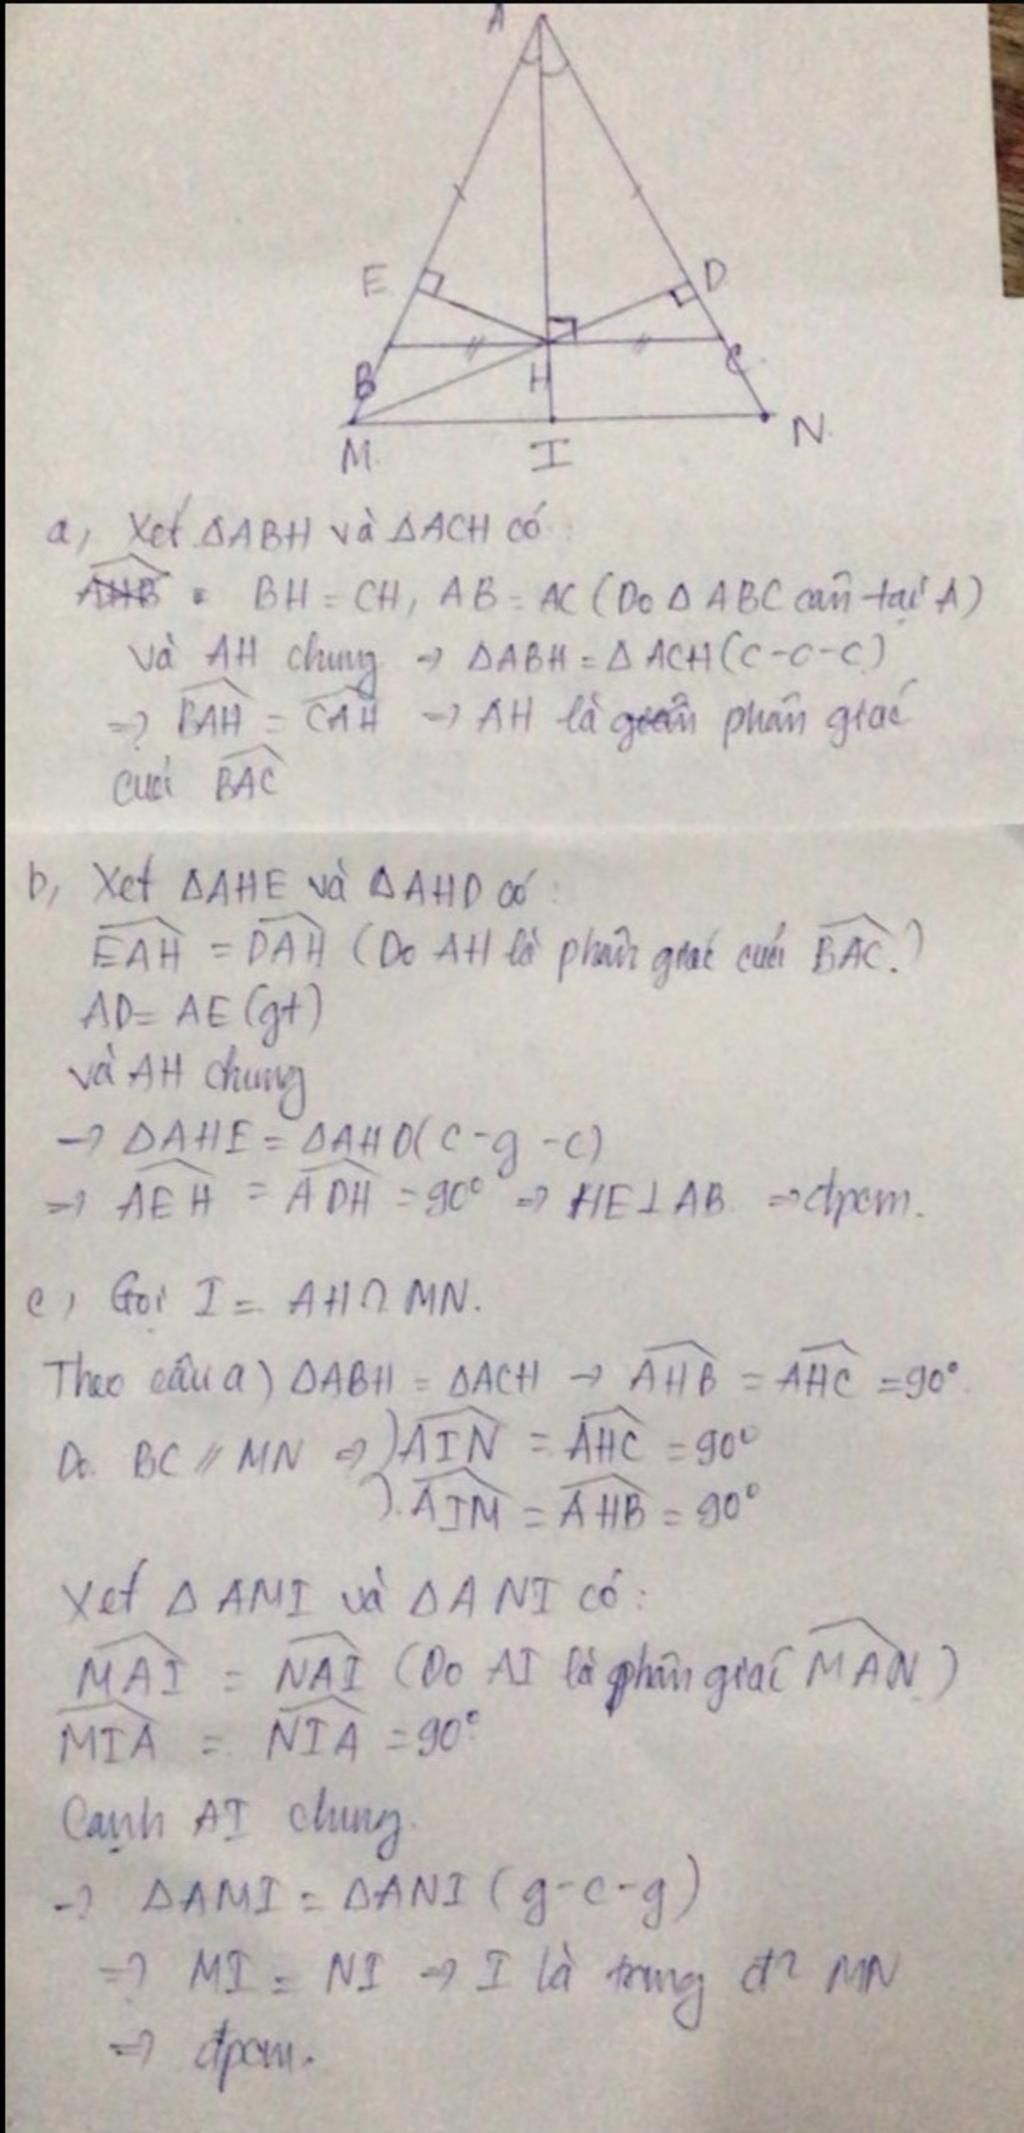 A
E
D
B
H
C
M
I
N
a, Xét ΔABH và ΔACH có:
BH = CH, AB = AC (Do Δ ABC cân tại A)
và AH chung → ΔABH = Δ ACH (c-c-c)
⇒ \widehat{BAH} = \widehat{CAH} → AH là phân giác
của \widehat{BAC}
b, Xét ΔAHE và ΔAHD có:
\widehat{EAH} = \widehat{DAH} (Do AH là phân giác của \widehat{BAC}.)
AD = AE (gt)
và AH chung
→ ΔAHE = ΔAHD (c-g-c)
⇒ \widehat{AEH} = \widehat{ADH} = 90° ⇒ HE ⊥ AB ⇒ đpcm.
c, Gọi I = AH ∩ MN.
Theo câu a) ΔABH = ΔACH → \widehat{AHB} = \widehat{AHC} = 90°.
Do BC // MN ⇒ ) \widehat{AIN} = \widehat{AHC} = 90°
). \widehat{AIM} = \widehat{AHB} = 90°
Xét Δ AMI và Δ ANI có:
\widehat{MAI} = \widehat{NAI} (Do AI là phân giác \widehat{MAN})
\widehat{MIA} = \widehat{NIA} = 90°
Cạnh AI chung.
→ ΔAMI = ΔANI (g-c-g)
⇒ MI = NI → I là trung đ² MN
⇒ đpcm.